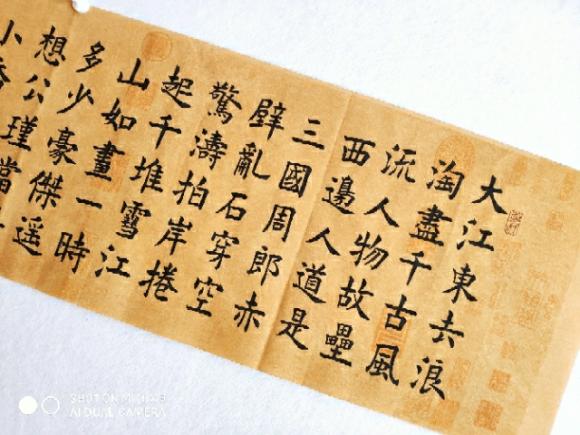 大江東去浪
淘盡千古風
流人物故壘
西邊人道是
三國周郎赤
壁亂石穿空
驚濤拍岸捲
起千堆雪江
山如畫一時
多少豪傑遥
想公瑾當
小
SHOT ON MI
AI DUAL CAMERA